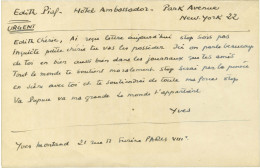 Edith Piaf - Hôtel Ambassador - Park Avenue
New York 22
URGENT
Edith Chérie, Ai reçu lettre aujourd'hui stop sois pas
inquiète petite chérie tu vas les posséder Ici on parle beaucoup
de toi en bien aussi bien dans les journaux sur les amis
Tout le monde te soutient moralement stop par la pensée
en bien avec toi et te soutiendrai de toute ma force stop
Va Piapia va ma grande le monde t'appartient
Yves
Yves Montand 21 rue Paris VIII°